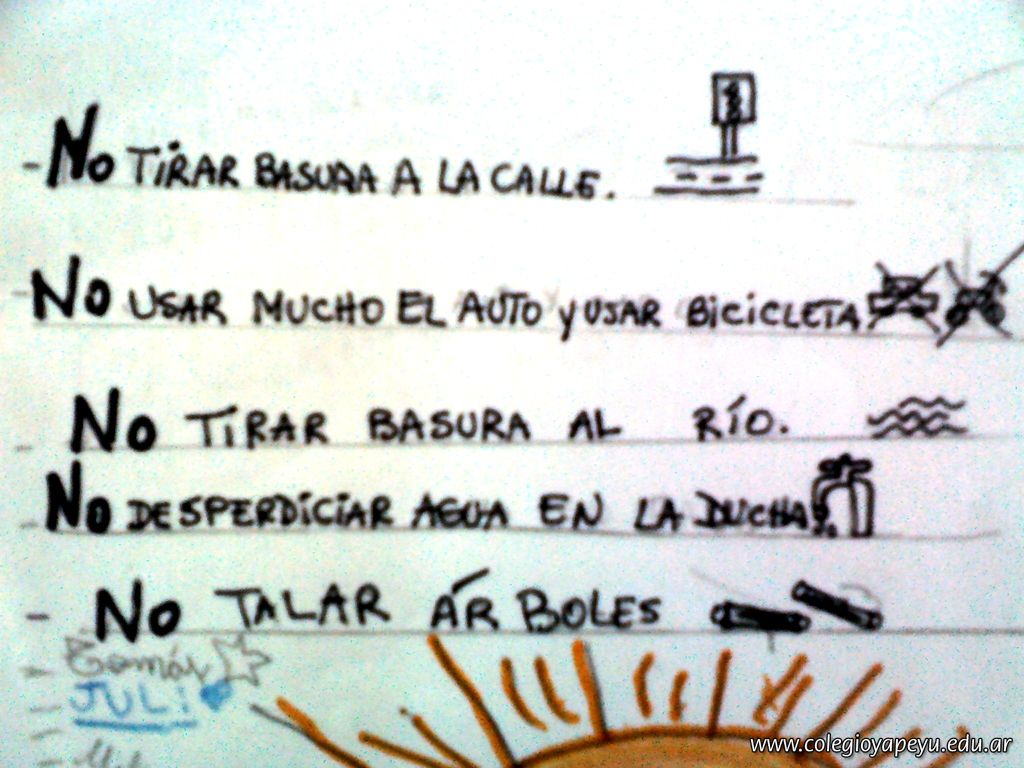 - No TIRAR BASURA A LA CALLE.
- No USAR MUCHO EL AUTO Y USAR BICICLETA
- No TIRAR BASURA AL RÍO.
- No DESPERDICIAR AGUA EN LA DUCHA
- No TALAR ÁRBOLES
- Tomás
- JULI
www.colegioyapeyu.edu.ar